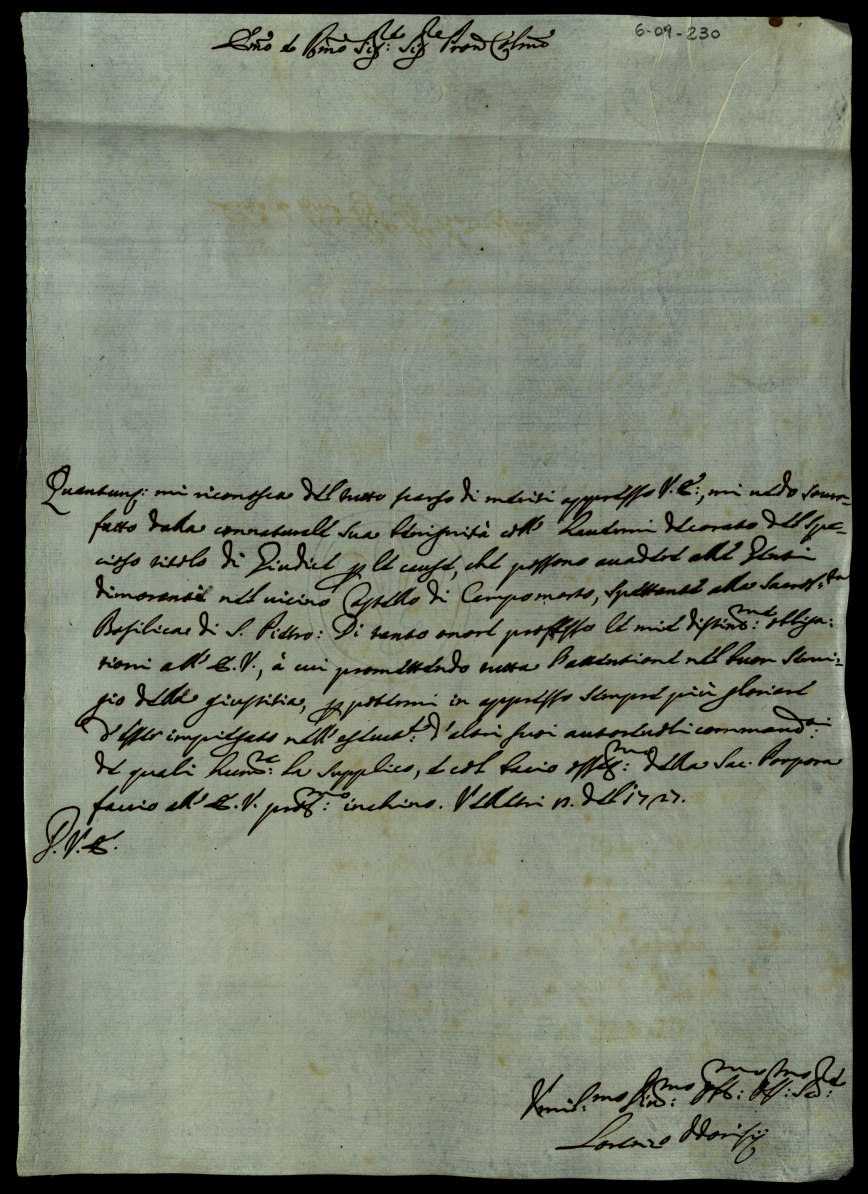 6-09-230
Em̃o e Rm̃o Sig.re Sig.re Pron̄ Col.mo
Quantunq: mi riconosca del tutto scarso di meriti appresso V.E., mi uedo soura-
fatto dalla connaturale Sua benignità coll' hauermi decorato dello spe-
cioso titolo di Giudice p le cause, che possono accadere alle Genti
dimorante nel uicino Castello di Campomorto, spettante alla Sacros.ta
Basilica di S. Pietro: Di tanto onore professo le mie distin.me obliga-
tioni all' E.V., à cui promettendo tutta l'attentione nel buon serui-
gio della giustitia, p potermi in appresso sempre più gloriare
d'esser impiegato nell' d'altri suoi autoreuoli command.ti
de quali hum.te la supplico, e col bacio osseq.mo della Sac. Porpora
faccio all' E.V. prof.mo inchino. Velletri del 1727.
D. V. E.
Vmil.mo Diu.mo Obb.mo Ser.re
Lorenzo